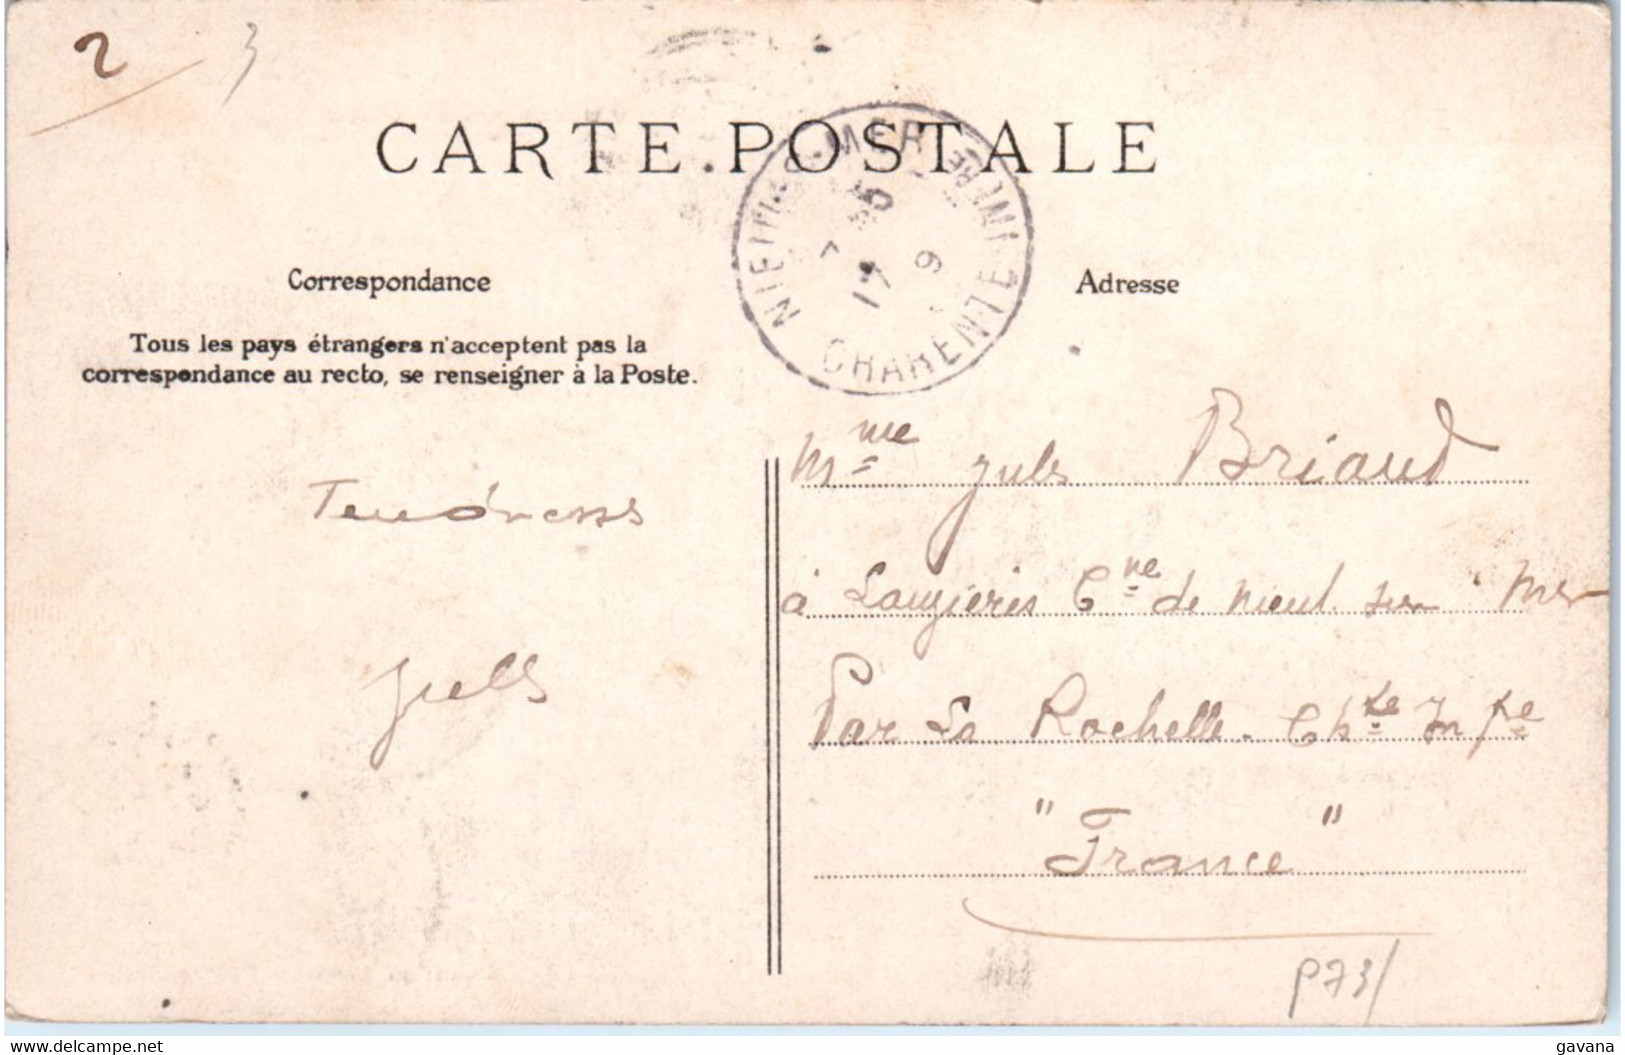 2 3
CARTE POSTALE
NIEUL-S-MER
CHARENTE INFRE
17 9
Correspondance
Adresse
Tous les pays étrangers n'acceptent pas la
correspondance au recto, se renseigner à la Poste.
Mme Jules Briaud
à Laugeris Cne de Nieul sur Mer
Par La Rochelle. Chte Infre
"France"
Tendresses
Jules
P73/
delcampe.net
gavana